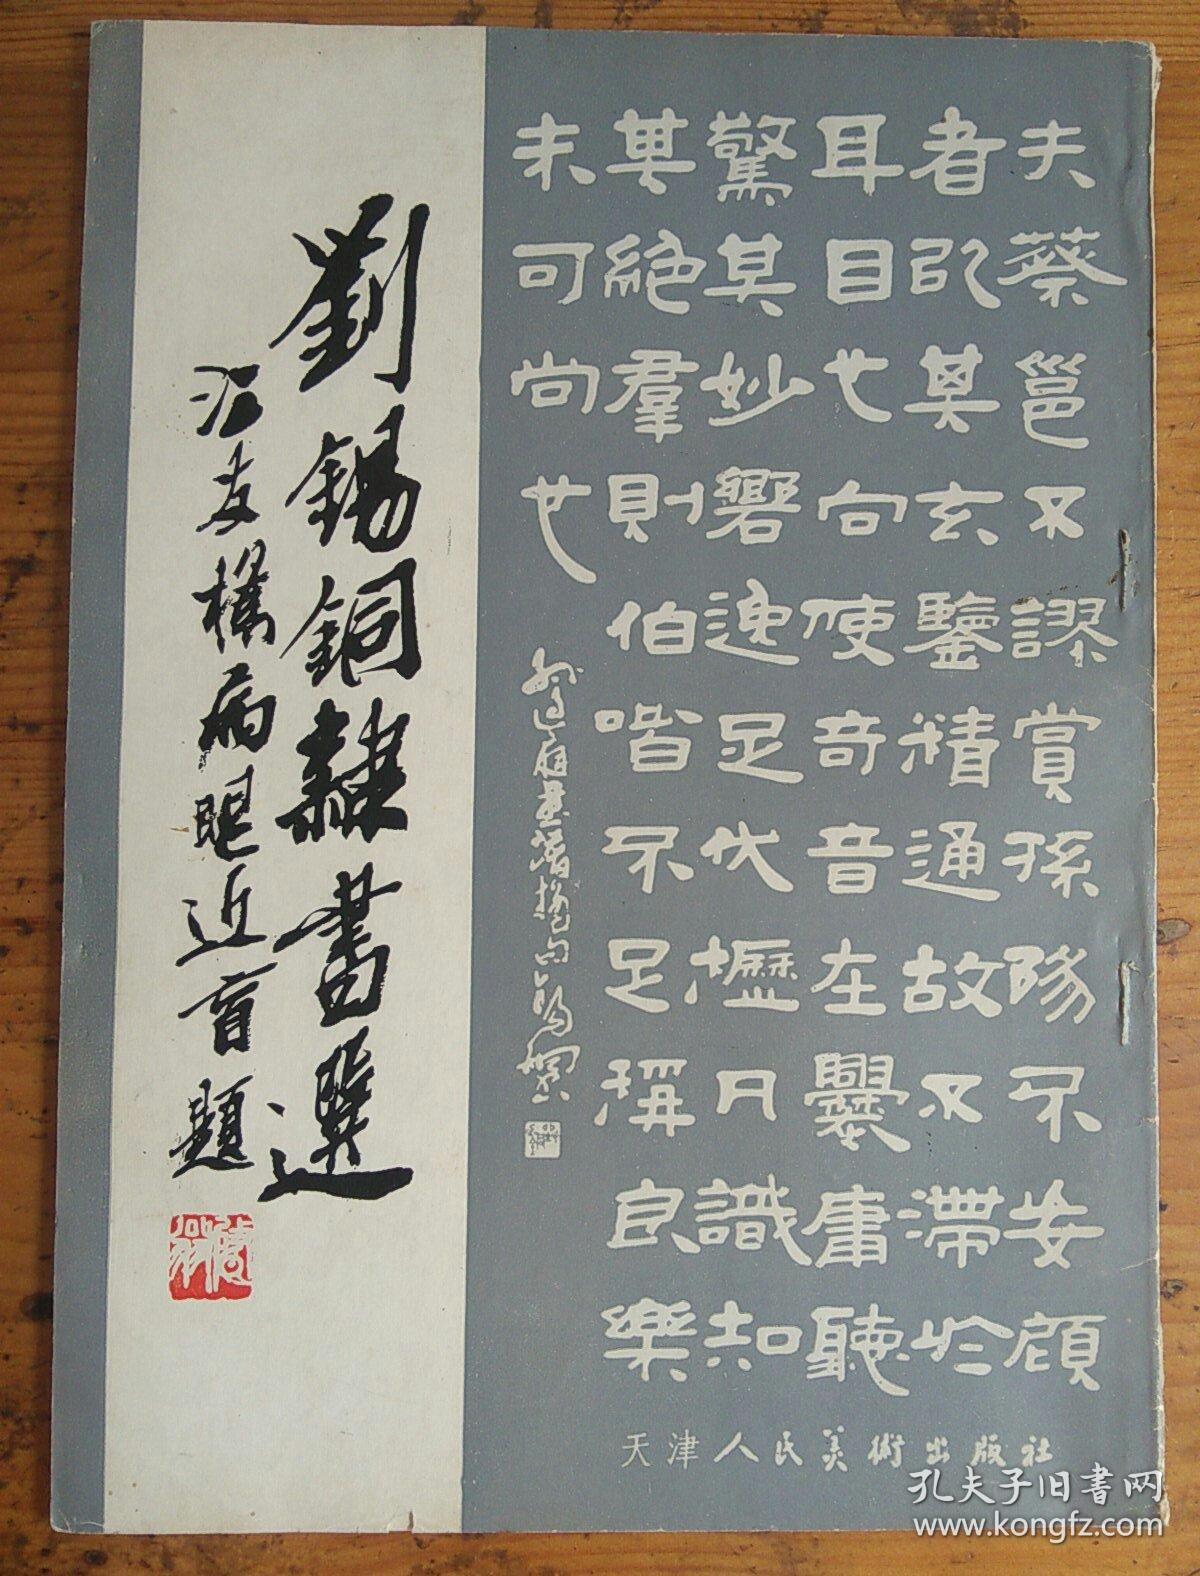 夫蔡邕不謬賞孫陽不妄顧
者以其玄鑒精通故不滯於
耳目也向使奇音在爨庸聽
驚其妙響逸足伏櫪凡識知
其絕羣則伯喈不足稱良樂
未可尚也
孫過庭書譜
劉錫銅隸書選
病眼近盲題
天津人民美術出版社
孔夫子旧书网
www.kongfz.com